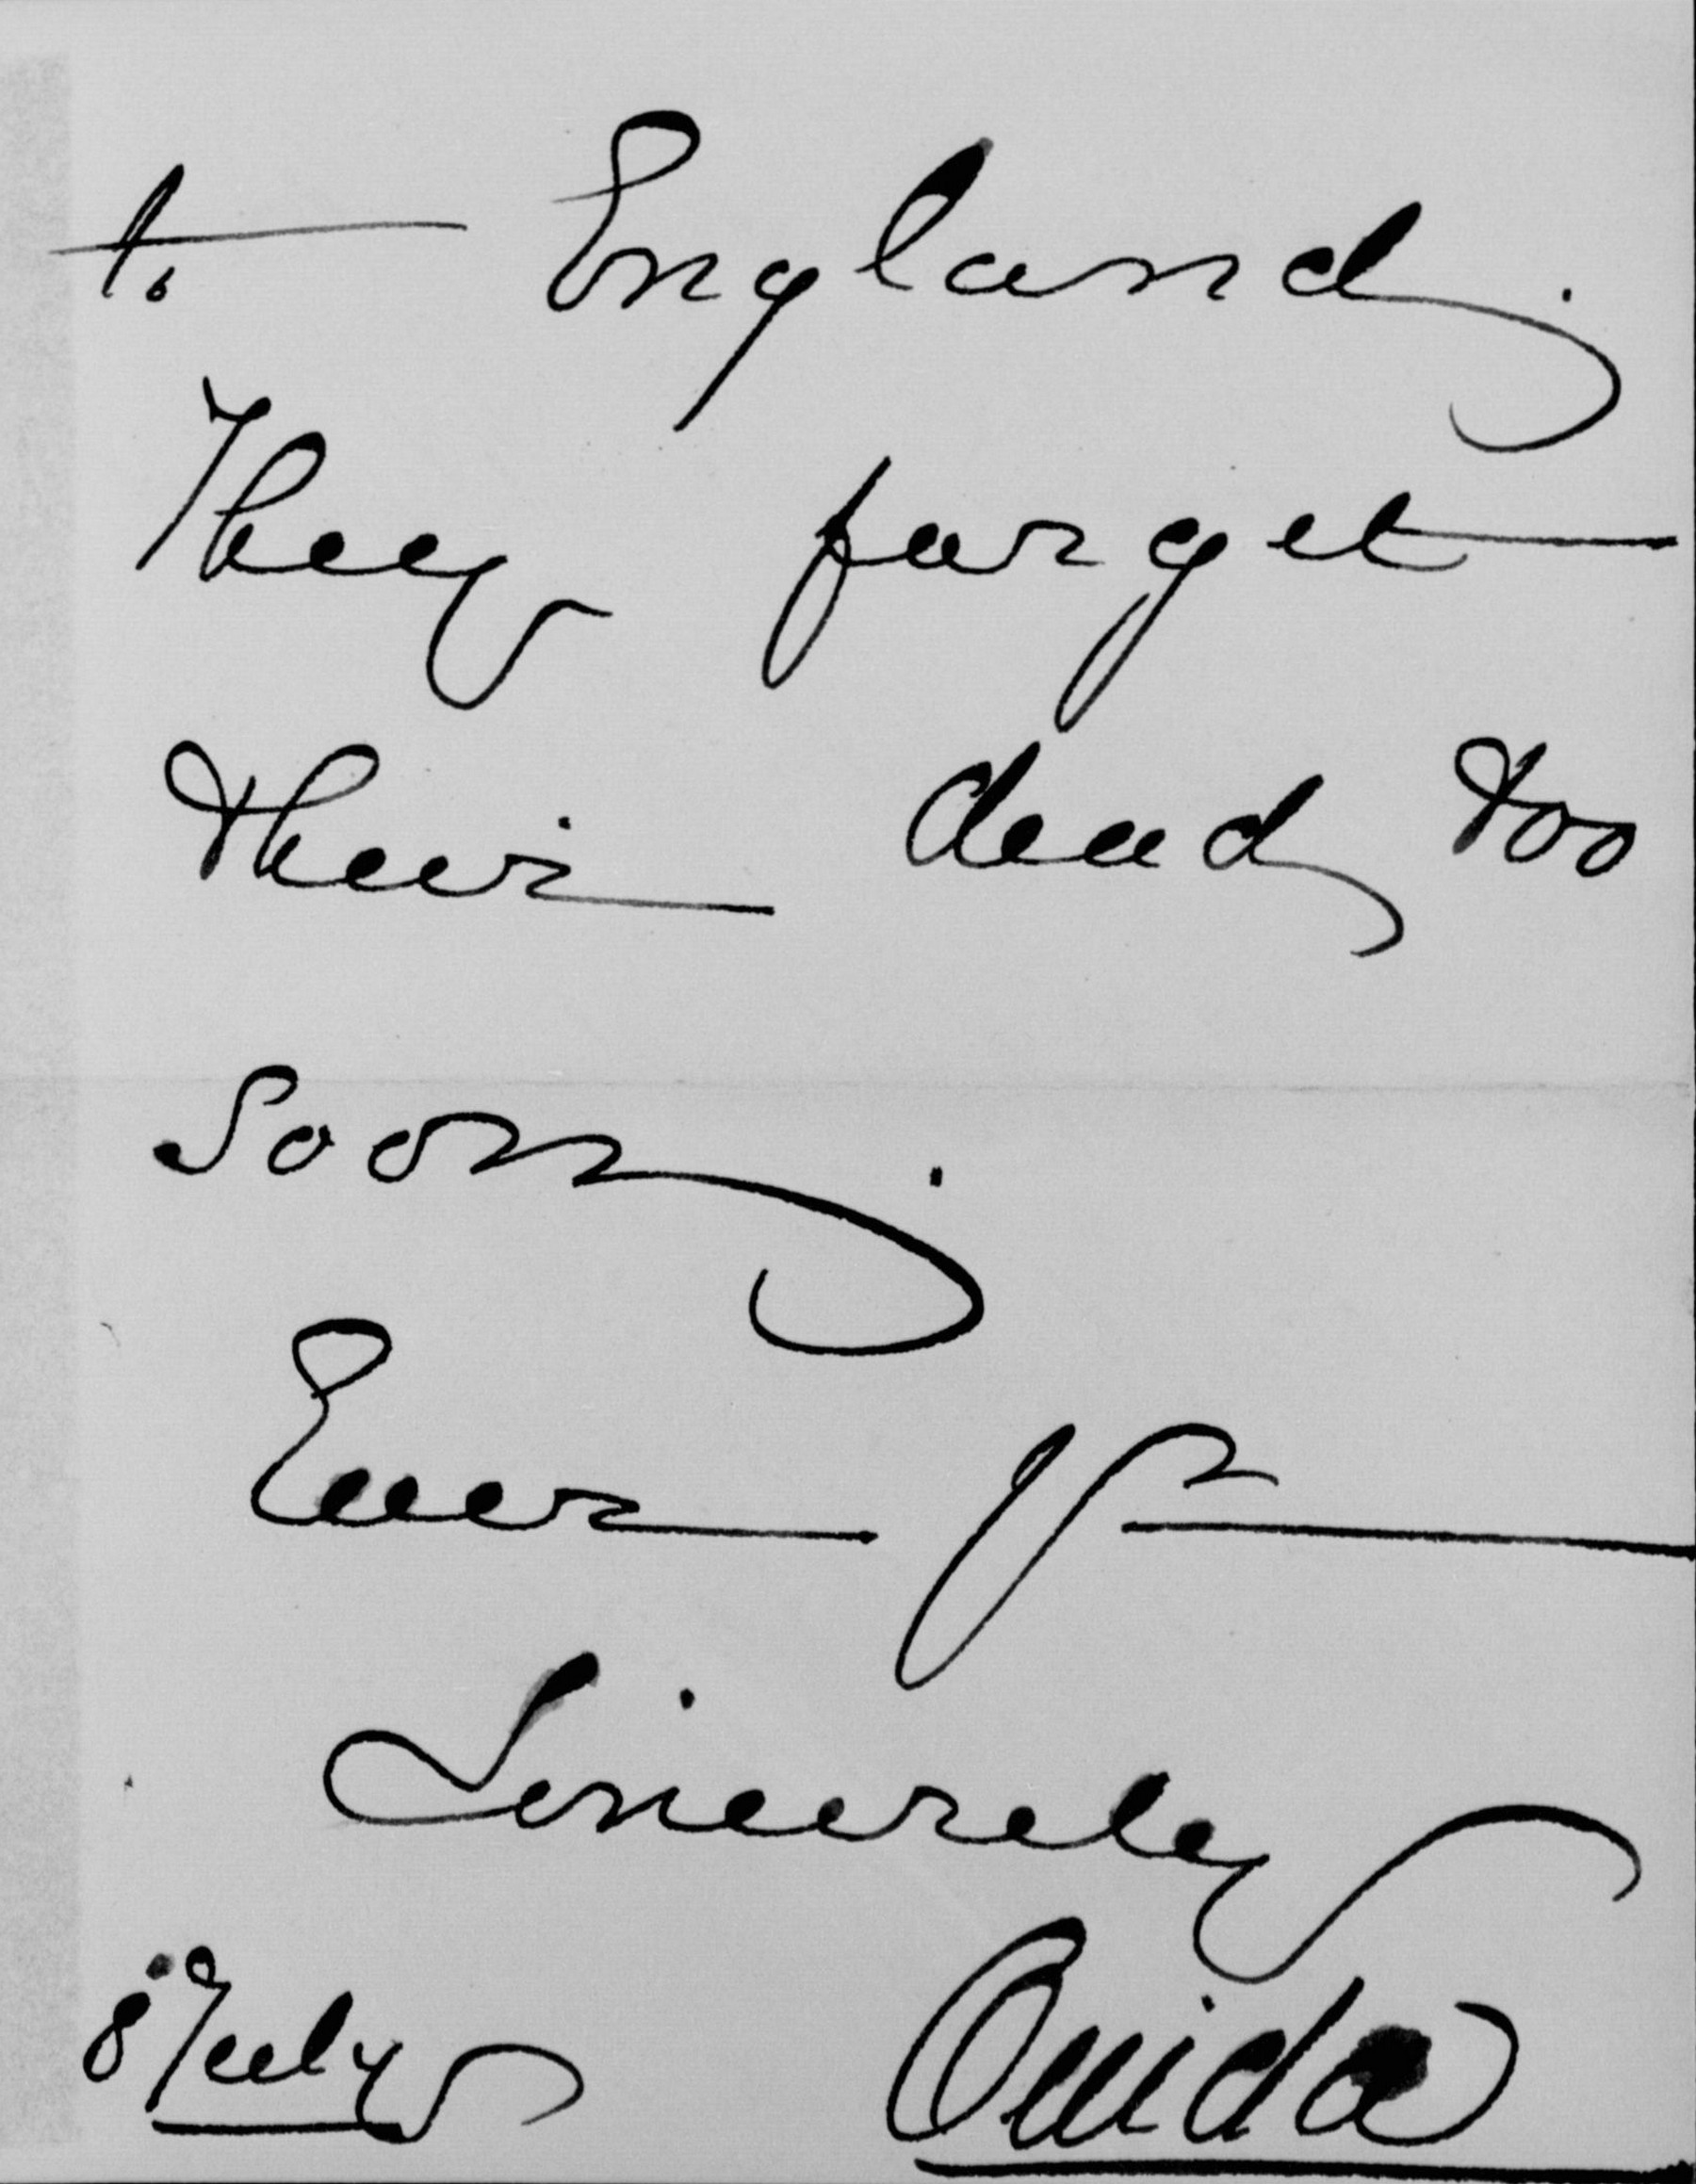 to England.
They forget
their dead too
soon.
Ever yr
Sincerely
8 July Ouida